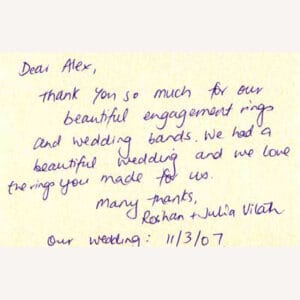 Dear Alex,
Thank you so much for our
beautiful engagement rings
and wedding bands. We had a
beautiful wedding and we love
the rings you made for us.
Many thanks,
Roshan + Julia
Our wedding: 11/3/07